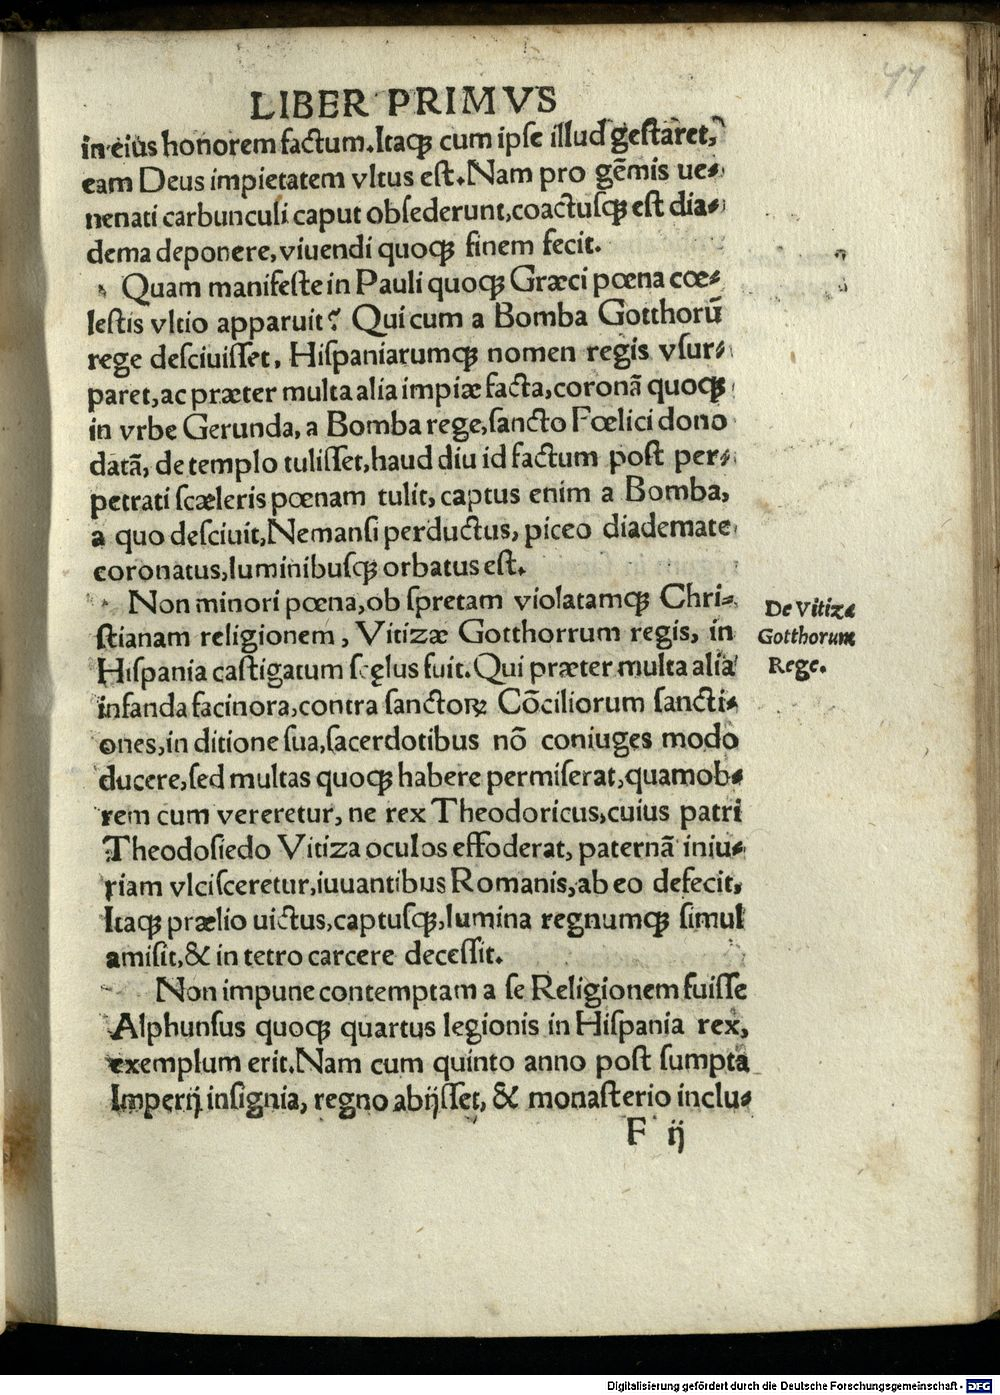 44
LIBER PRIMVS
in eius honorem factum. Itaqꝫ cum ipſe illud geſtaret,
eam Deus impietatem vltus eſt. Nam pro gēmis ue-
nenati carbunculi caput obſederunt, coactuſqꝫ eſt dia-
dema deponere, viuendi quoqꝫ finem fecit.
Quam manifeſte in Pauli quoqꝫ Græci pœna cœ-
leſtis vltio apparuit? Qui cum a Bomba Gotthorū
rege deſciuiſſet, Hiſpaniarumqꝫ nomen regis vſur-
paret, ac præter multa alia impiæ facta, coronā quoqꝫ
in vrbe Gerunda, a Bomba rege, ſancto Fœlici dono
datā, de templo tuliſſet, haud diu id factum poſt per-
petrati ſcæleris pœnam tulit, captus enim a Bomba,
a quo deſciuit, Nemanſi perductus, piceo diademate
coronatus, luminibuſqꝫ orbatus eſt.
Non minori pœna, ob ſpretam violatamqꝫ Chri-
ſtianam religionem, Vitizæ Gotthorrum regis, in
Hiſpania caſtigatum ſcęlus fuit. Qui præter multa alia
infanda facinora, contra ſanctoꝝ Cōciliorum ſancti-
ones, in ditione ſua, ſacerdotibus nō coniuges modo
ducere, ſed multas quoqꝫ habere permiſerat, quamob-
rem cum vereretur, ne rex Theodoricus, cuius patri
Theodoſiedo Vitiza oculos effoderat, paternā iniu-
riam vlciſceretur, iuuantibus Romanis, ab eo defecit,
Itaqꝫ prælio uictus, captuſqꝫ, lumina regnumqꝫ ſimul
amiſit, & in tetro carcere deceſſit.
Non impune contemptam a ſe Religionem fuiſſe
Alphunſus quoqꝫ quartus legionis in Hiſpania rex,
exemplum erit. Nam cum quinto anno poſt ſumpta
Imperij inſignia, regno abijſſet, & monaſterio inclu-
F ij
De Vitiza
Gotthorum
Rege.
Digitalisierung gefördert durch die Deutsche Forschungsgemeinschaft - DFG